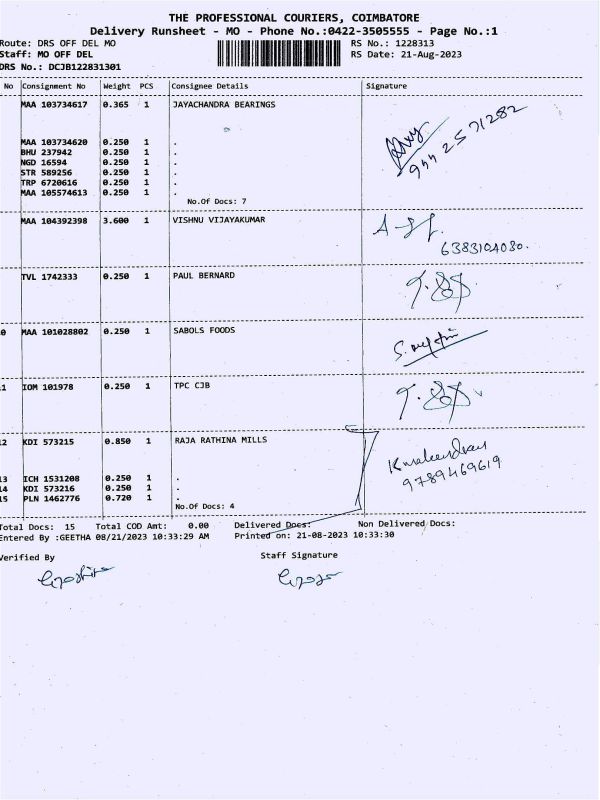 THE PROFESSIONAL COURIERS, COIMBATORE
Delivery Runsheet - MO - Phone No.:0422-3505555 - Page No.:1
Route: DRS OFF DEL MO RS No.: 1228313
Staff: MO OFF DEL RS Date: 21-Aug-2023
DRS No.: DCJB122831301
No Consignment No Weight PCS Consignee Details Signature
MAA 103734617 0.365 1 JAYACHANDRA BEARINGS
MAA 103734620 0.250 1 .
BHU 237942 0.250 1 .
NGD 16594 0.250 1 .
STR 589256 0.250 1 .
TRP 6720616 0.250 1 .
MAA 105574613 0.250 1 .
No.Of Docs: 7
MAA 104392398 3.600 1 VISHNU VIJAYAKUMAR
6383104080.
TVL 1742333 0.250 1 PAUL BERNARD
0 MAA 101028802 0.250 1 SABOLS FOODS
1 IOM 101978 0.250 1 TPC CJB
2 KDI 573215 0.850 1 RAJA RATHINA MILLS
9789469619
3 ICH 1531208 0.250 1 .
4 KDI 573216 0.250 1 .
5 PLN 1462776 0.720 1 .
No.Of Docs: 4
Total Docs: 15 Total COD Amt: 0.00 Delivered Docs: Non Delivered Docs:
Entered By :GEETHA 08/21/2023 10:33:29 AM Printed on: 21-08-2023 10:33:30
Verified By Staff Signature